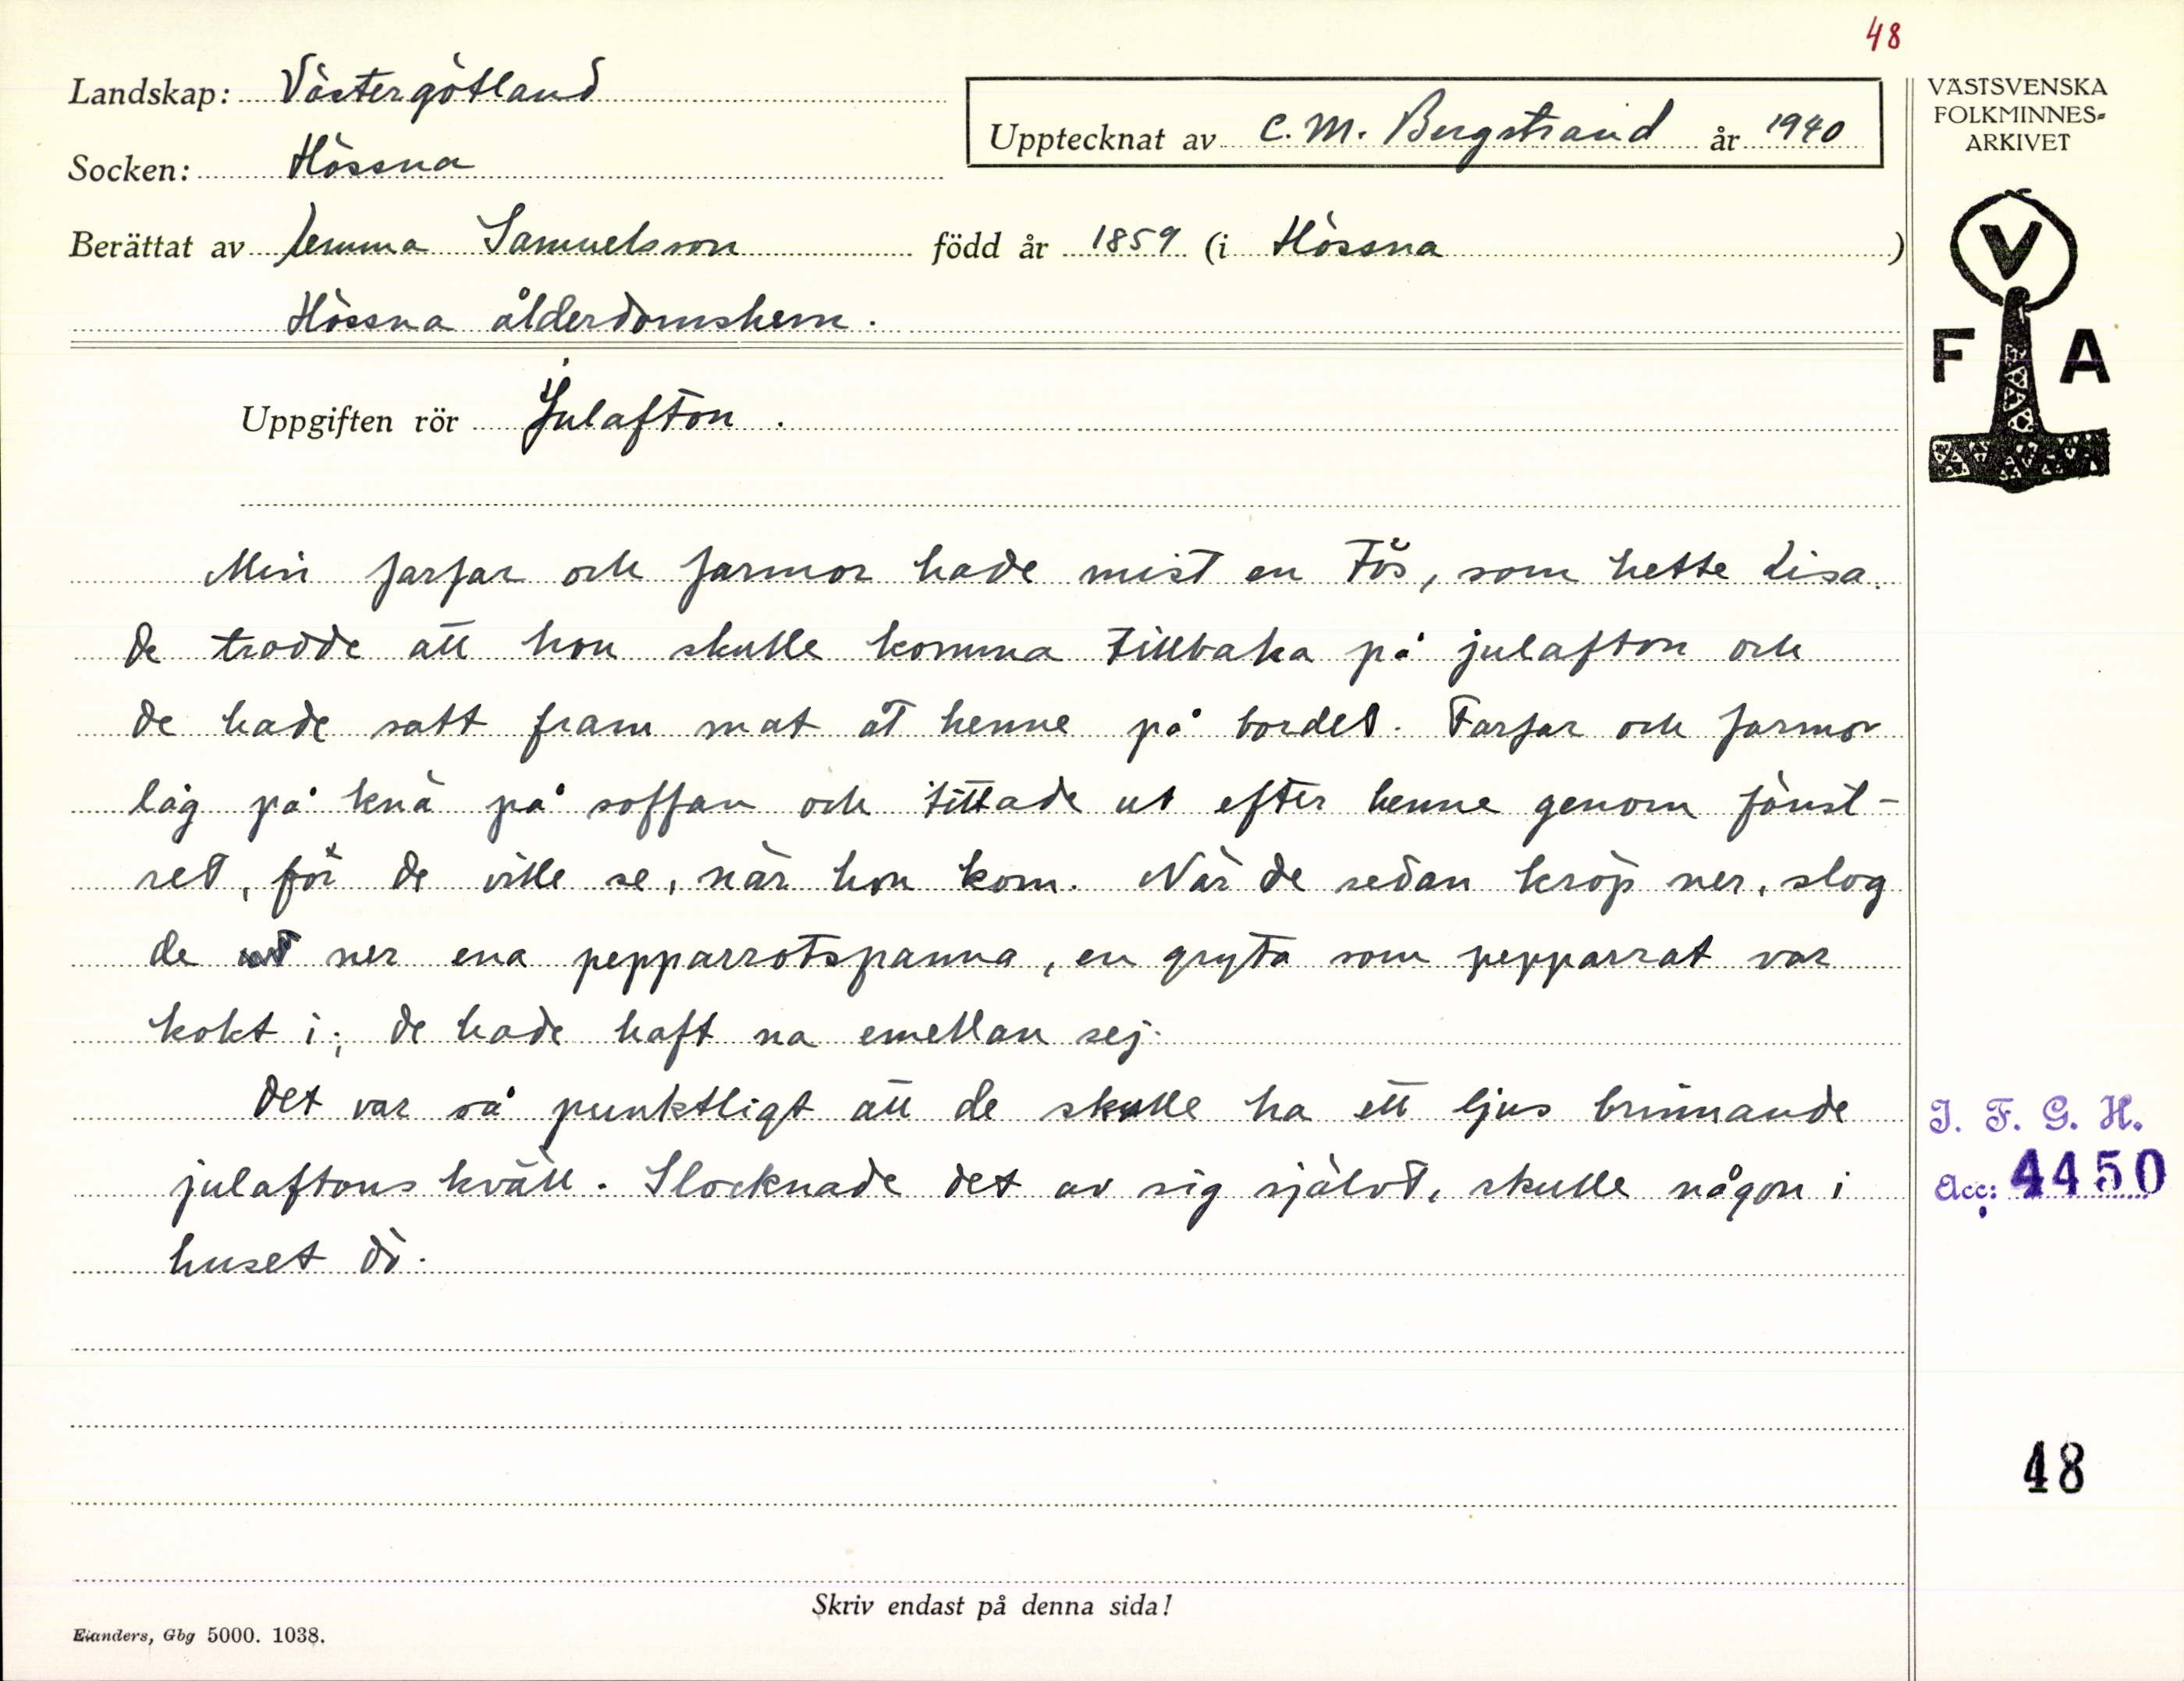 48
Landskap: Västergötland
Upptecknat av C. M. Bergstrand år 1940
VÄSTSVENSKA
FOLKMINNES-
ARKIVET
Socken: Hössna
Berättat av Emma Samuelsson född år 1859 (i Hössna)
Hössna ålderdomshem.
V
F A
Uppgiften rör Julafton.
Min farfar och farmor hade mist en tös, som hette Lisa.
De trodde att hon skulle komma tillbaka på julafton och
de hade satt fram mat åt henne på bordet. Farfar och farmor
låg på knä på soffan och tittade ut efter henne genom fönst-
ret, för de ville se, när hon kom. När de sedan kröp ner, slog
de ner ena pepparrotspanna, en gryta som pepparrat var
kokt i; de hade haft na emellan sej.
Det var så punktligt att de skulle ha ett ljus brinnande
julaftons kväll. Slocknade det av sig självt, skulle någon i
huset dö.
I. F. G. H.
Acc: 4450
48
Skriv endast på denna sida!
Elanders, Gbg 5000. 1038.